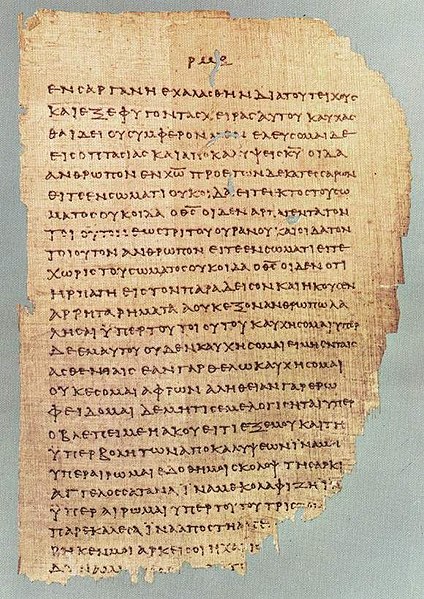 ΕΝϹΑΡΓΑΝΗΕΧΑΛΑϹΘΗΝΔΙΑΤΟΥΤΕΙΧΟΥϹ
ΚΑΙΕΞΕΦΥΓΟΝΤΑϹΧΕΙΡΑϹΑΥΤΟΥΚΑΥΧΑϹ
ΘΑΙΔΕΙΟΥϹΥΜΦΕΡΟΝΜΕΝΕΛΕΥϹΟΜΑΙΔΕ
ΕΙϹΟΠΤΑϹΙΑϹΚΑΙΑΠΟΚΑΛΥΨΕΙϹΚ̅Υ̅ΟΙΔΑ
ΑΝΘΡΩΠΟΝΕΝΧ̅Ω̅ΠΡΟΕΤΩΝΔΕΚΑΤΕϹϹΑΡΩΝ
ΕΙΤΕΕΝϹΩΜΑΤΙΟΥΚΟΙΔΑΕΙΤΕΕΚΤΟϹΤΟΥϹΩ
ΜΑΤΟϹΟΥΚΟΙΔΑΟΘ̅Ϲ̅ΟΙΔΕΝΑΡΠΑΓΕΝΤΑΤΟΝ
ΤΟΙΟΥΤΟΝΕΩϹΤΡΙΤΟΥΟΥΡΑΝΟΥΚΑΙΟΙΔΑΤΟΝ
ΤΟΙΟΥΤΟΝΑΝΘΡΩΠΟΝΕΙΤΕΕΝϹΩΜΑΤΙΕΙΤΕ
ΧΩΡΙϹΤΟΥϹΩΜΑΤΟϹΟΥΚΟΙΔΑΟΘ̅Ϲ̅ΟΙΔΕΝΟΤΙ
ΗΡΠΑΓΗΕΙϹΤΟΝΠΑΡΑΔΕΙϹΟΝΚΑΙΗΚΟΥϹΕΝ
ΑΡΡΗΤΑΡΗΜΑΤΑΑΟΥΚΕΞΟΝΑΝΘΡΩΠΩΛΑ
ΛΗϹΑΙΫΠΕΡΤΟΥΤΟΙΟΥΤΟΥΚΑΥΧΗϹΟΜΑΙΫΠΕΡ
ΔΕΕΜΑΥΤΟΥΟΥΔΕΝΚΑΥΧΗϹΟΜΑΙΕΙΜΗΕΝΤΑΙϹ
ΑϹΘΕΝΕΙΑΙϹΕΑΝΓΑΡΘΕΛΩΚΑΥΧΗϹΟΜΑΙ
ΟΥΚΕϹΟΜΑΙΑΦΡΩΝΑΛΗΘΕΙΑΝΓΑΡΕΡΩ
ΦΕΙΔΟΜΑΙΔΕΜΗΤΙϹΕΜΕΛΟΓΙϹΗΤΑΙΫΠΕΡ
ΟΒΛΕΠΕΙΜΕΗΑΚΟΥΕΙΤΙΕΞΕΜΟΥΚΑΙΤΗ
ΫΠΕΡΒΟΛΗΤΩΝΑΠΟΚΑΛΥΨΕΩΝΪΝΑΜΗ
ΫΠΕΡΑΙΡΩΜΑΙΕΔΟΘΗΜΟΙϹΚΟΛΟΨΤΗϹΑΡΚΙ
ΑΓΓΕΛΟϹϹΑΤΑΝΑΪΝΑΜΕΚΟΛΑΦΙΖΗΪΝΑ
ΫΠΕΡΑΙΡΩΜΑΙΫΠΕΡΤΟΥΤΟΥΤΡΙϹ
ΠΑΡΕΚΑΛΕϹΑΪΝΑΑΠΟϹΤΗ
ΡΗΚΕΝΜΟΙΑΡΚΕΙϹΟΙΗΧΑΡΙϹ